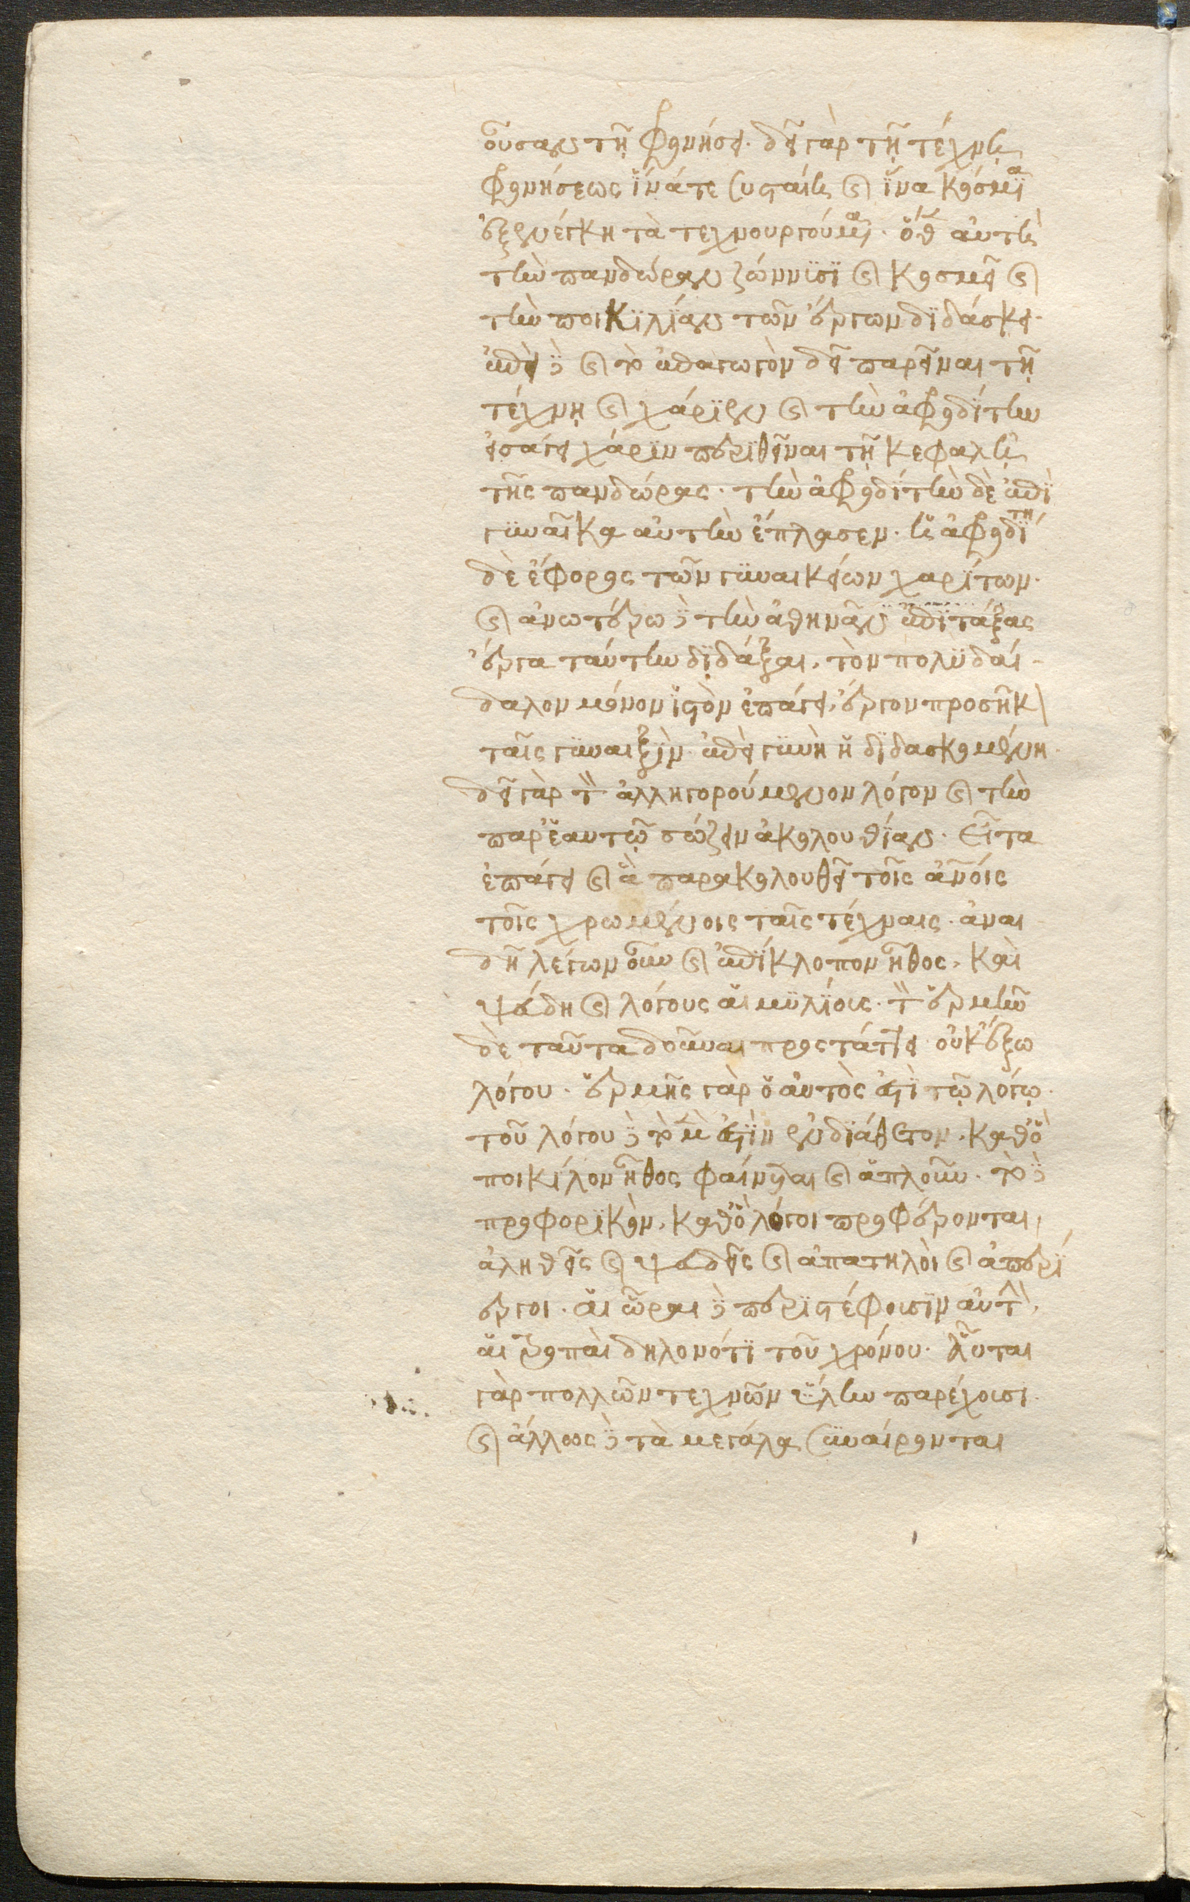 οὖσαν τῆ φρονήσει. δεῖ γὰρ τῆ τέχνη
φρονήσεως ἵνά τε συσταίη καὶ ἵνα κόσμια
ἐξενέγκη τὰ τεχνουργούμενα. ὅθεν αὐτὴ
τὴν πανδώραν ζώννϊσϊ καὶ κοσμεῖ καὶ
τὴν ποικϊλΐαν τῶν ἔργων δϊδάσκει.
ἐπεὶ δὲ καὶ τὸ ἐπαγωγὸν δεῖ παρεῖναι τῆ
τέχνῃ καὶ χάριεν καὶ τὴν ἀφροδίτην
εἰσάγει χάρϊν περιθεῖναι τῆ κεφαλῆ
τῆς πανδώρας. τὴν ἀφροδίτην δὲ ἐπὶ
γϋναῖκα αὐτὴν ἔπλασεν. ἡ ἀφροδίτη
δὲ ἔφορος τῶν γϋναικείων χαρΐτων.
καὶ ἀνωτέρω δὲ τὴν ἀθηνᾶν ἐπϊτάξας
ἔργα ταύτην δϊδάξαι, τὸν πολϋδαί-
δαλον μόνον ἱστὸν ἐπάγει, ἔργον προσῆκον
ταῖς γϋναιξὶν. ἐπεὶ γϋνὴ ἡ δϊδασκομένη.
δεῖ γὰρ τὸν ἀλληγορούμενον λόγον καὶ τὴν
παρ' ἑαυτῶ σώζειν ἀκολουθίαν. Εἶτα
ἐπάγει καὶ ἃ παρακολουθεῖ τοῖς ἀνοις
τοῖς χρωμένοις ταῖς τέχναις. ἀναι
δῆ λέγων οὖν καὶ ἐπΐκλοπον ἦθος. καὶ
ψεύδη καὶ λόγους αἱμϋλΐοις. τὸν ἑρμῆν
δὲ ταῦτα δοῦναι προστάττει οὐκ ἔξω
λόγου. ἑρμῆς γὰρ ὁ αὐτὸς ἐστὶ τῶ λόγῳ.
τοῦ λόγου δὲ τὸ μὲν ἐστὶν ἐνδϊάθετον, καθὸ
ποικίλον ἦθος φαίνεται καὶ ἁπλοῦν. τὸ δὲ
προφορϊκὸν, καθὸ λόγοι προφέρονται,
ἀληθεῖς καὶ ψευδεῖς καὶ ἀπατηλοὶ καὶ ἀπερί
εργοι. αἱ ὧραι δὲ περϊστέφοισϊν αὐτὴν,
αἱ ῥοπαὶ δηλονότϊ τοῦ χρόνου. αὗται
γὰρ πολλῶν τεχνῶν ὕλην παρέχοισι.
καὶ ἄλλως δὲ τὰ μεγάλα σϋναίρονται